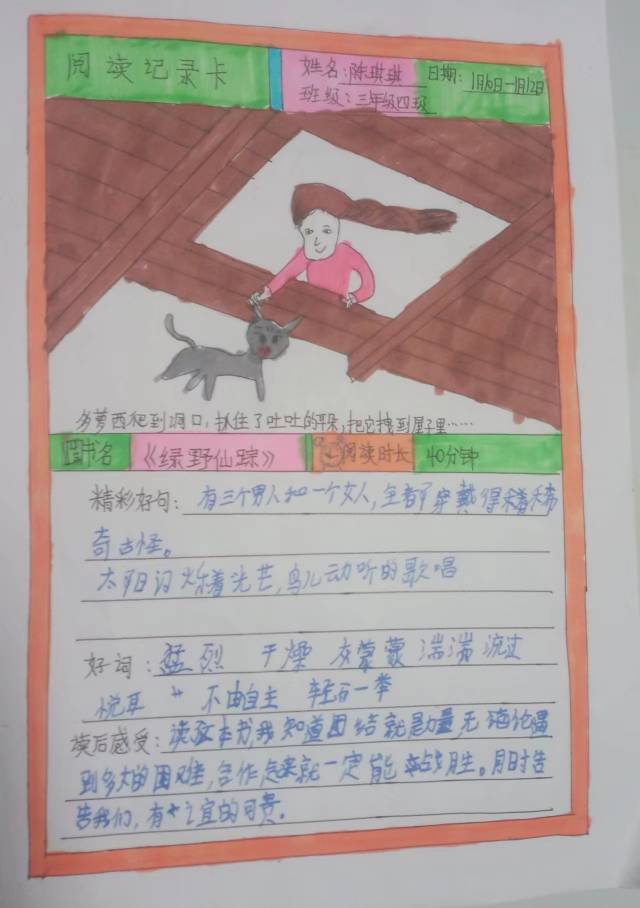 阅读记录卡
姓名:陈琪琪 日期:1月10日-1月12日
班级:三年级四班
多萝西爬到洞口,抓住了吐吐的耳朵,把它拽到屋子里……
图书名 《绿野仙踪》 阅读时长 40分钟
精彩好句:有三个男人和一个女人,全都穿戴得稀
奇古怪。
太阳闪烁着光芒,鸟儿动听的歌唱
好词:猛烈 干燥 灰蒙蒙 湍湍流过
悦耳 不由自主 轻而一举
读后感受:读这本书我知道团结就是力量,无论遇
到多大的困难,合作起来就一定能战胜。同时告
告我们,有的可贵。